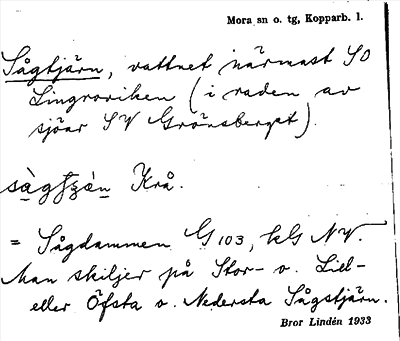 Mora sn o. tg, Kopparb. l.
Sågtjärn, vattnet närmast SO
Lingroriken (i raden av
sjöar SV Grönsberget).
Krå.
= Sågdammen G 103, kG NV.
Man skiljer på Stor- o. Lill-
eller Öfsta o. Nedersta Sågstjärn.
Bror Lindén 1933